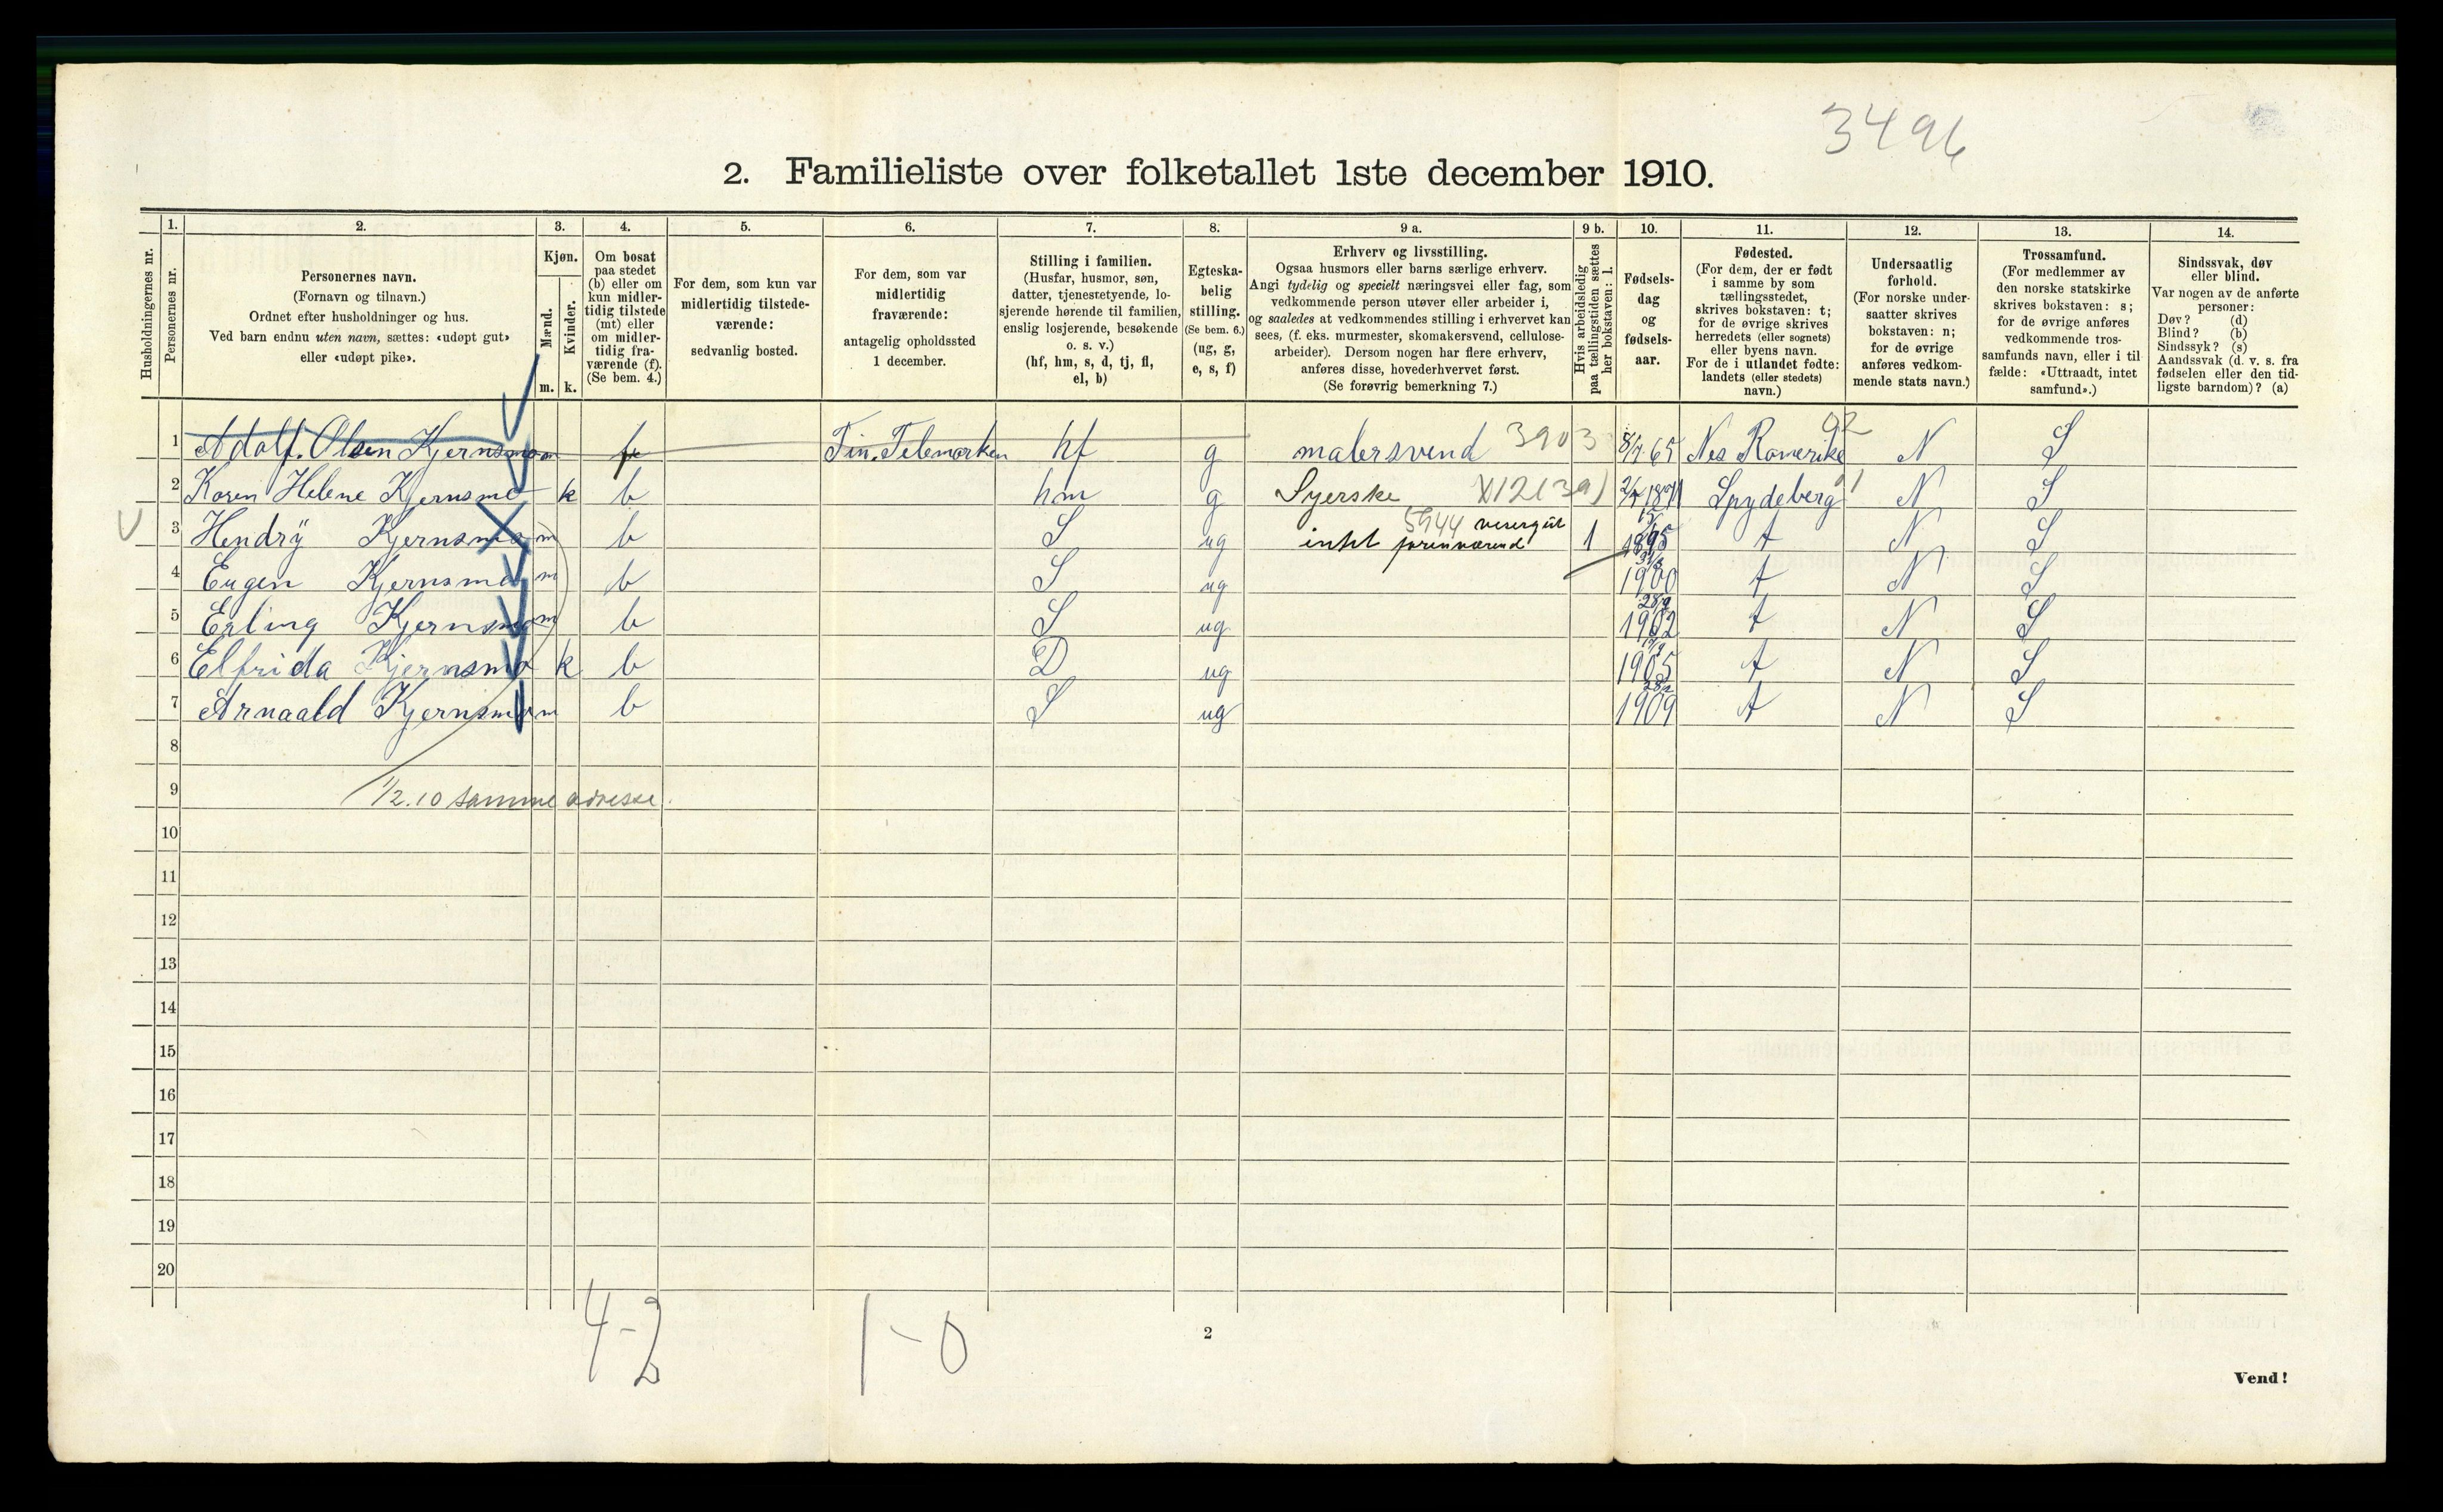 3496
2. Familieliste over folketallet 1ste december 1910.
Husholdningernes nr.
1. Personernes nr.
2. Personernes navn.
(Fornavn og tilnavn.)
Ordnet efter husholdninger og hus.
Ved barn endnu uten navn, sættes: «udøpt gut»
eller «udøpt pike».
3. Kjøn.
Mænd. m.
Kvinder. k.
4. Om bosat
paa stedet
(b) eller om
kun midler-
tidig tilstede
(mt) eller
om midler-
tidig fra-
værende (f).
(Se bem. 4.)
5. For dem, som kun var
midlertidig tilstede-
værende:
sedvanlig bosted.
6. For dem, som var
midlertidig
fraværende:
antagelig opholdssted
1 december.
7. Stilling i familien.
(Husfar, husmor, søn,
datter, tjenestetyende, lo-
sjerende hørende til familien,
enslig losjerende, besøkende
o. s. v.)
(hf, hm, s, d, tj, fl,
el, b)
8. Egteska-
belig
stilling.
(Se bem. 6.)
(ug, g,
e, s, f)
9 a. Erhverv og livsstilling.
Ogsaa husmors eller barns særlige erhverv.
Angi tydelig og specielt næringsvei eller fag, som
vedkommende person utøver eller arbeider i,
og saaledes at vedkommendes stilling i erhvervet kan
sees, (f. eks. murmester, skomakersvend, cellulose-
arbeider). Dersom nogen har flere erhverv,
anføres disse, hovederhvervet først.
(Se forøvrig bemerkning 7.)
9 b. Hvis arbeidsledig
paa tællingstiden sættes
her bokstaven: l.
10. Fødsels-
dag
og
fødsels-
aar.
11. Fødested.
(For dem, der er født
i samme by som
tællingsstedet,
skrives bokstaven: t;
for de øvrige skrives
herredets (eller sognets)
eller byens navn.
For de i utlandet fødte:
landets (eller stedets)
navn.)
12. Undersaatlig
forhold.
(For norske under-
saatter skrives
bokstaven: n;
for de øvrige
anføres vedkom-
mende stats navn.)
13. Trossamfund.
(For medlemmer av
den norske statskirke
skrives bokstaven: s;
for de øvrige anføres
vedkommende tros-
samfunds navn, eller i til
fælde: «Uttraadt, intet
samfund».)
14. Sindssvak, døv
eller blind.
Var nogen av de anførte
personer:
Døv? (d)
Blind? (b)
Sindssyk? (s)
Aandssvak (d. v. s. fra
fødselen eller den tid-
ligste barndom)? (a)
1 Adolf. Olsen Kjernsmo m Tin. Telemarken hf g malersvend 3903 65 Nes Romerike 92 N S
2 Karen Helene Kjernsmo k b hm g Syerske Spydeberg N S
3 Hendrÿ Kjernsmo m b S ug intet 5944 visergut 1 1895 t N S
4 Eugen Kjernsmo m b S ug 1900 t N S
5 Erling Kjernsmo m b S ug 28/9 1902 t N S
6 Elfrida Kjernsmo k b D ug 1905 t N S
7 Arnaald Kjernsmo m b S ug 1909 t N S
8
9 1/2.10 samme adresse.
10
11
12
13
14
15
16
17
18
19
20
4-2 1-0
2
Vend!